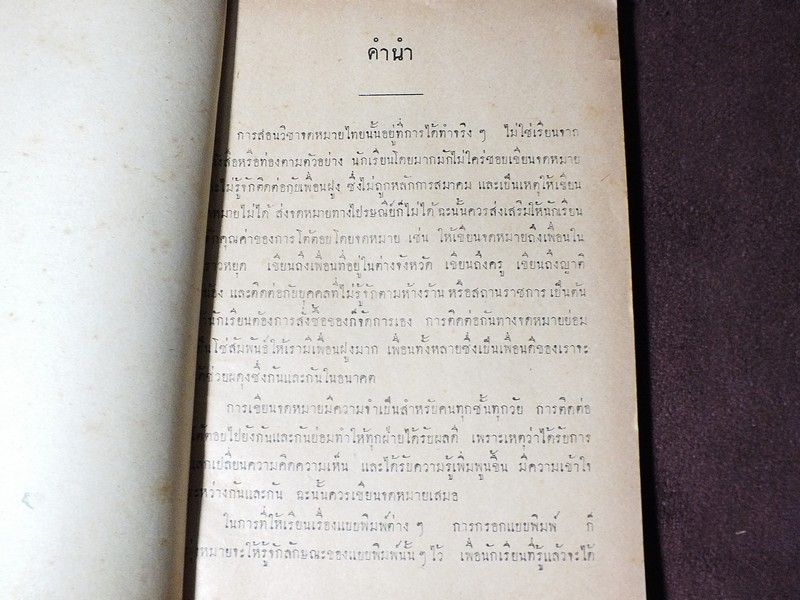 คำนำ
การสอนวิชาจดหมายไทยนั้นอยู่ที่การได้ทำจริง ๆ ไม่ใช่เรียนจาก
สือหรือท่องตามตัวอย่าง นักเรียนโดยมากมักไม่ใคร่ชอบเขียนจดหมาย
ไม่รู้จักติดต่อกับเพื่อนฝูง ซึ่งไม่ถูกหลักการสมาคม และเป็นเหตุให้เขียน
หมายไม่ได้ ส่งจดหมายทางไปรษณีย์ก็ไม่ได้ ฉะนั้นควรส่งเสริมให้นักเรียน
คุณค่าของการโต้ตอบโดยจดหมาย เช่น ให้เขียนจดหมายถึงเพื่อนใน
หยุด เขียนถึงเพื่อนที่อยู่ในต่างจังหวัด เขียนถึงครู เขียนถึงญาติ
และติดต่อกับบุคคลที่ไม่รู้จักตามห้างร้าน หรือสถานราชการ เป็นต้น
นักเรียนต้องการสั่งซื้อของก็จัดการเอง การติดต่อกันทางจดหมายย่อม
เป็นโซ่สัมพันธ์ให้เรามีเพื่อนฝูงมาก เพื่อนทั้งหลายซึ่งเป็นเพื่อนดีของเราจะ
ได้ช่วยผดุงซึ่งกันและกันในอนาคต
การเขียนจดหมายมีความจำเป็นสำหรับคนทุกชั้นทุกวัย การติดต่อ
โต้ตอบไปยังกันและกันย่อมทำให้ทุกฝ่ายได้รับผลดี เพราะเหตุว่าได้รับการ
แลกเปลี่ยนความคิดความเห็น และได้รับความรู้เพิ่มพูนขึ้น มีความเข้าใจ
ระหว่างกันและกัน ฉะนั้นควรเขียนจดหมายเสมอ
ในการที่ให้เรียนเรื่องแบบพิมพ์ต่าง ๆ การกรอกแบบพิมพ์ ก็
มุ่งหมายจะให้รู้จักลักษณะของแบบพิมพ์นั้น ๆ ไว้ เพื่อนักเรียนที่รู้แล้วจะได้